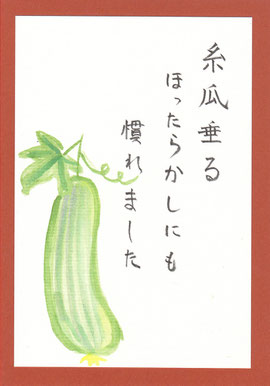 糸瓜垂る
ほったらかしにも
慣れました